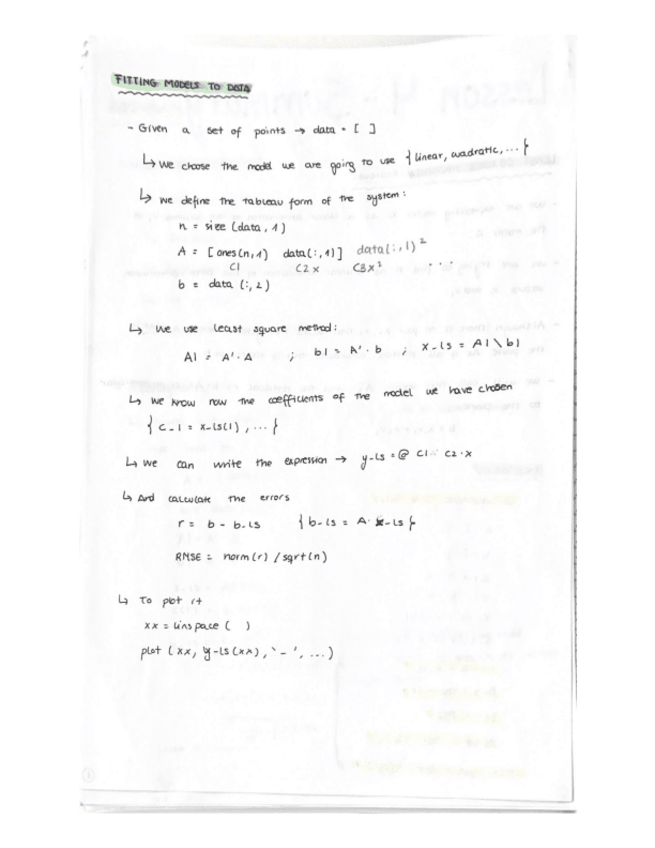 FITTING MODELS TO DATA
- Given a set of points → data = [ ]
↳ We choose the model we are going to use { linear, quadratic, ... }
↳ We define the tableau form of the system:
n = size (data, 1)
A = [ones(n,1) data(:,1)] data(:,1)²
C1 C2x C3x² ...
b = data (:,2)
↳ We use least square method:
A1 = A'·A ; b1 = A'·b ; x-ls = A1\b1
↳ We know now the coefficients of the model we have chosen
{ C-1 = x-ls(1), ... }
↳ We can write the expression → y-ls = @ C1 C2·x
↳ And calculate the errors
r = b - b-ls { b-ls = A·x-ls }
RMSE = norm(r) / sqrt(n)
↳ To plot it
xx = linspace ( )
plot (xx, y-ls(xx), '-', ...)